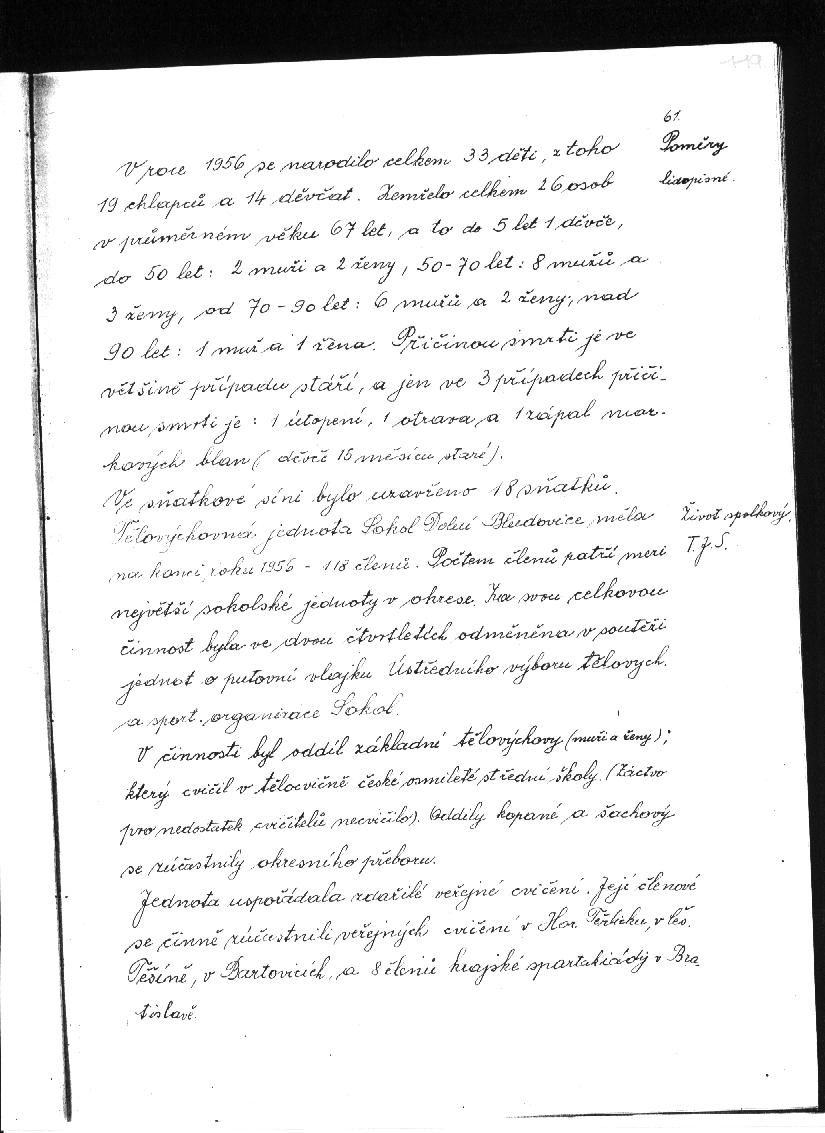 119
61.
Poměry
lidopisné.
V roce 1956 se narodilo celkem 33 dětí, z toho
19 chlapců a 14 děvčat. Zemřelo celkem 26 osob
v průměrném věku 67 let, a to do 5 let 1 děvče,
do 50 let: 2 muži a 2 ženy, 50-70 let: 8 mužů a
3 ženy, od 70-90 let: 6 mužů a 2 ženy, nad
90 let: 1 muž a 1 žena. Příčinou smrti je ve
většině případu stáří, a jen ve 3 případech příči-
nou smrti je: 1 utopení, 1 otrava a 1 zápal moz-
kových blan ( děvče 15 měsícu staré).
Ve sňatkové síni bylo uzavřeno 18 sňatků.
Život spolkový.
T.J.S.
Tělovýchovná jednota Sokol Dolní Bludovice měla
na konci roku 1956 - 118 členů. Počtem členů patří mezi
největší sokolské jednoty v okrese. Za svou celkovou
činnost byla ve dvou čtvrtletích odměněna v soutěži
jednot o putovní vlajku Ústředního výboru tělových.
a sport. organizace Sokol.
V činnosti byl oddíl základní tělovýchovy (muži a ženy);
který cvičil v tělocvičně české osmileté střední školy. (Žáctvo
pro nedostatek cvičitelů necvičilo). Oddíly kopané a šachový
se zúčastnily okresního přeboru.
Jednota uspořádala zdařilé veřejné cvičení. Její členové
se činně zúčastnili veřejných cvičení v Hor. Těrlicku, v Čes.
Těšíně, v Bartovicích, a 8 členů krajské spartakiády v Bra-
tislavě.